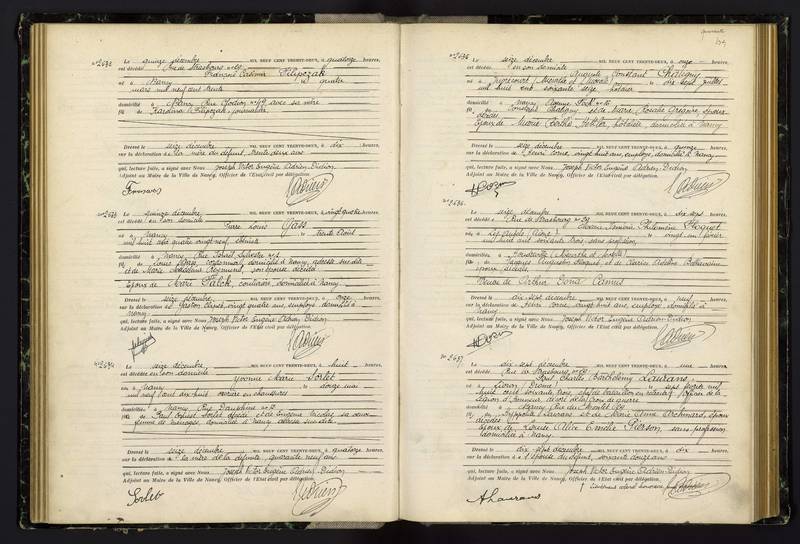 Nº 2632 Le quinze décembre MIL NEUF CENT TRENTE-DEUX, à quatorze heures,
est décédé Rue de Strasbourg
François Casimir Filipczak
né à Nancy le quatre
mars mil neuf cent trente
domicilié à Nancy, Rue nº 49 avec sa mère
fils de Karolina Filipczak, journalière
Dressé le seize décembre MIL NEUF CENT TRENTE-DEUX, à dix heures,
sur la déclaration de la mère du défunt, trente deux ans
qui, lecture faite, a signé avec Nous Joseph Victor Eugène Adrien Didion
Adjoint au Maire de la Ville de Nancy, Officier de l'Etat civil par délégation.
Nº 2633 Le quinze décembre MIL NEUF CENT TRENTE-DEUX, à vingt quatre heures,
est décédé en son domicile
Pierre Louis Gass
né à Nancy le trente août
mil huit cent quatre vingt neuf, ébéniste
domicilié à Nancy, Rue Israël Sylvestre nº 1
fils de Louis Gass, domicilié à Nancy, adresse susdite
et de Marie Madeleine Reymund, son épouse décédée
Epoux de Marie Falck, couturière, domiciliée à Nancy
Dressé le seize décembre MIL NEUF CENT TRENTE-DEUX, à onze heures,
sur la déclaration de Gaston vingt quatre ans, employé, domicilié à
Nancy
qui, lecture faite, a signé avec Nous Joseph Victor Eugène Adrien Didion
Adjoint au Maire de la Ville de Nancy, Officier de l'Etat civil par délégation.
Nº 2634 Le seize décembre MIL NEUF CENT TRENTE-DEUX, à huit heures,
est décédée en son domicile
Yvonne Marie Sorlet
née à Nancy le douze mai
mil neuf cent dix huit, ouvrière en chaussures
domiciliée à Nancy, Rue Dauphine
fille de Paul Sorlet, décédé et de Eugénie Nicolas, sa veuve
femme de ménage, domiciliée à Nancy, adresse susdite
Dressé le seize décembre MIL NEUF CENT TRENTE-DEUX, à quatorze heures,
sur la déclaration de la mère de la défunte, quarante neuf ans
qui, lecture faite, a signé avec Nous Joseph Victor Eugène Adrien Didion
Adjoint au Maire de la Ville de Nancy, Officier de l'Etat civil par délégation.
Sorlet
Nº 2635 Le seize décembre MIL NEUF CENT TRENTE-DEUX, à onze heures,
est décédé en son domicile
Auguste Constant Chatigny
né à le dix sept juillet
mil huit cent soixante seize, hôtelier
domicilié à Nancy
fils de Chatigny et de Marie Grégoire, époux
décédés
Epoux de Marie Berthe hôtelière, domiciliée à Nancy
Dressé le seize décembre MIL NEUF CENT TRENTE-DEUX, à quinze heures,
sur la déclaration de Henri vingt huit ans, employé, domicilié à Nancy
qui, lecture faite, a signé avec Nous Joseph Victor Eugène Adrien Didion
Adjoint au Maire de la Ville de Nancy, Officier de l'Etat civil par délégation.
Nº 2636 Le seize décembre MIL NEUF CENT TRENTE-DEUX, à dix sept heures,
est décédée Rue de Strasbourg nº 29
Philomène Hoquet
née à (Aisne) le vingt un février
mil huit cent soixante trois, sans profession,
domiciliée à (Meurthe et Moselle)
fille de Hoquet et de
époux décédés
Veuve de Arthur Camus
Dressé le dix sept décembre MIL NEUF CENT TRENTE-DEUX, à neuf heures,
sur la déclaration de Henri vingt huit ans, employé, domicilié à
Nancy
qui, lecture faite, a signé avec Nous Joseph Victor Eugène Adrien Didion
Adjoint au Maire de la Ville de Nancy, Officier de l'Etat civil par délégation.
Nº 2637 Le dix sept décembre MIL NEUF CENT TRENTE-DEUX, à une heures,
est décédé Rue de Strasbourg
Paul Charles Barthélemy Laurans
né à Livron (Drôme) le sept août mil
huit cent soixante trois, chef de bataillon en retraite, officier de la
Légion d'honneur, décoré de la Croix de guerre
domicilié à Nancy, Rue du Montet
fils de Hippolyte Laurans et de Marie Anne Archinard, époux
décédés
Epoux de Louise Alice Emilie Pierson, sans profession
domiciliée à Nancy
Dressé le dix sept décembre MIL NEUF CENT TRENTE-DEUX, à dix heures,
sur la déclaration de l'épouse du défunt, soixante douze ans
qui, lecture faite, a signé avec Nous Joseph Victor Eugène Adrien Didion
Adjoint au Maire de la Ville de Nancy, Officier de l'Etat civil par délégation.
A Laurans